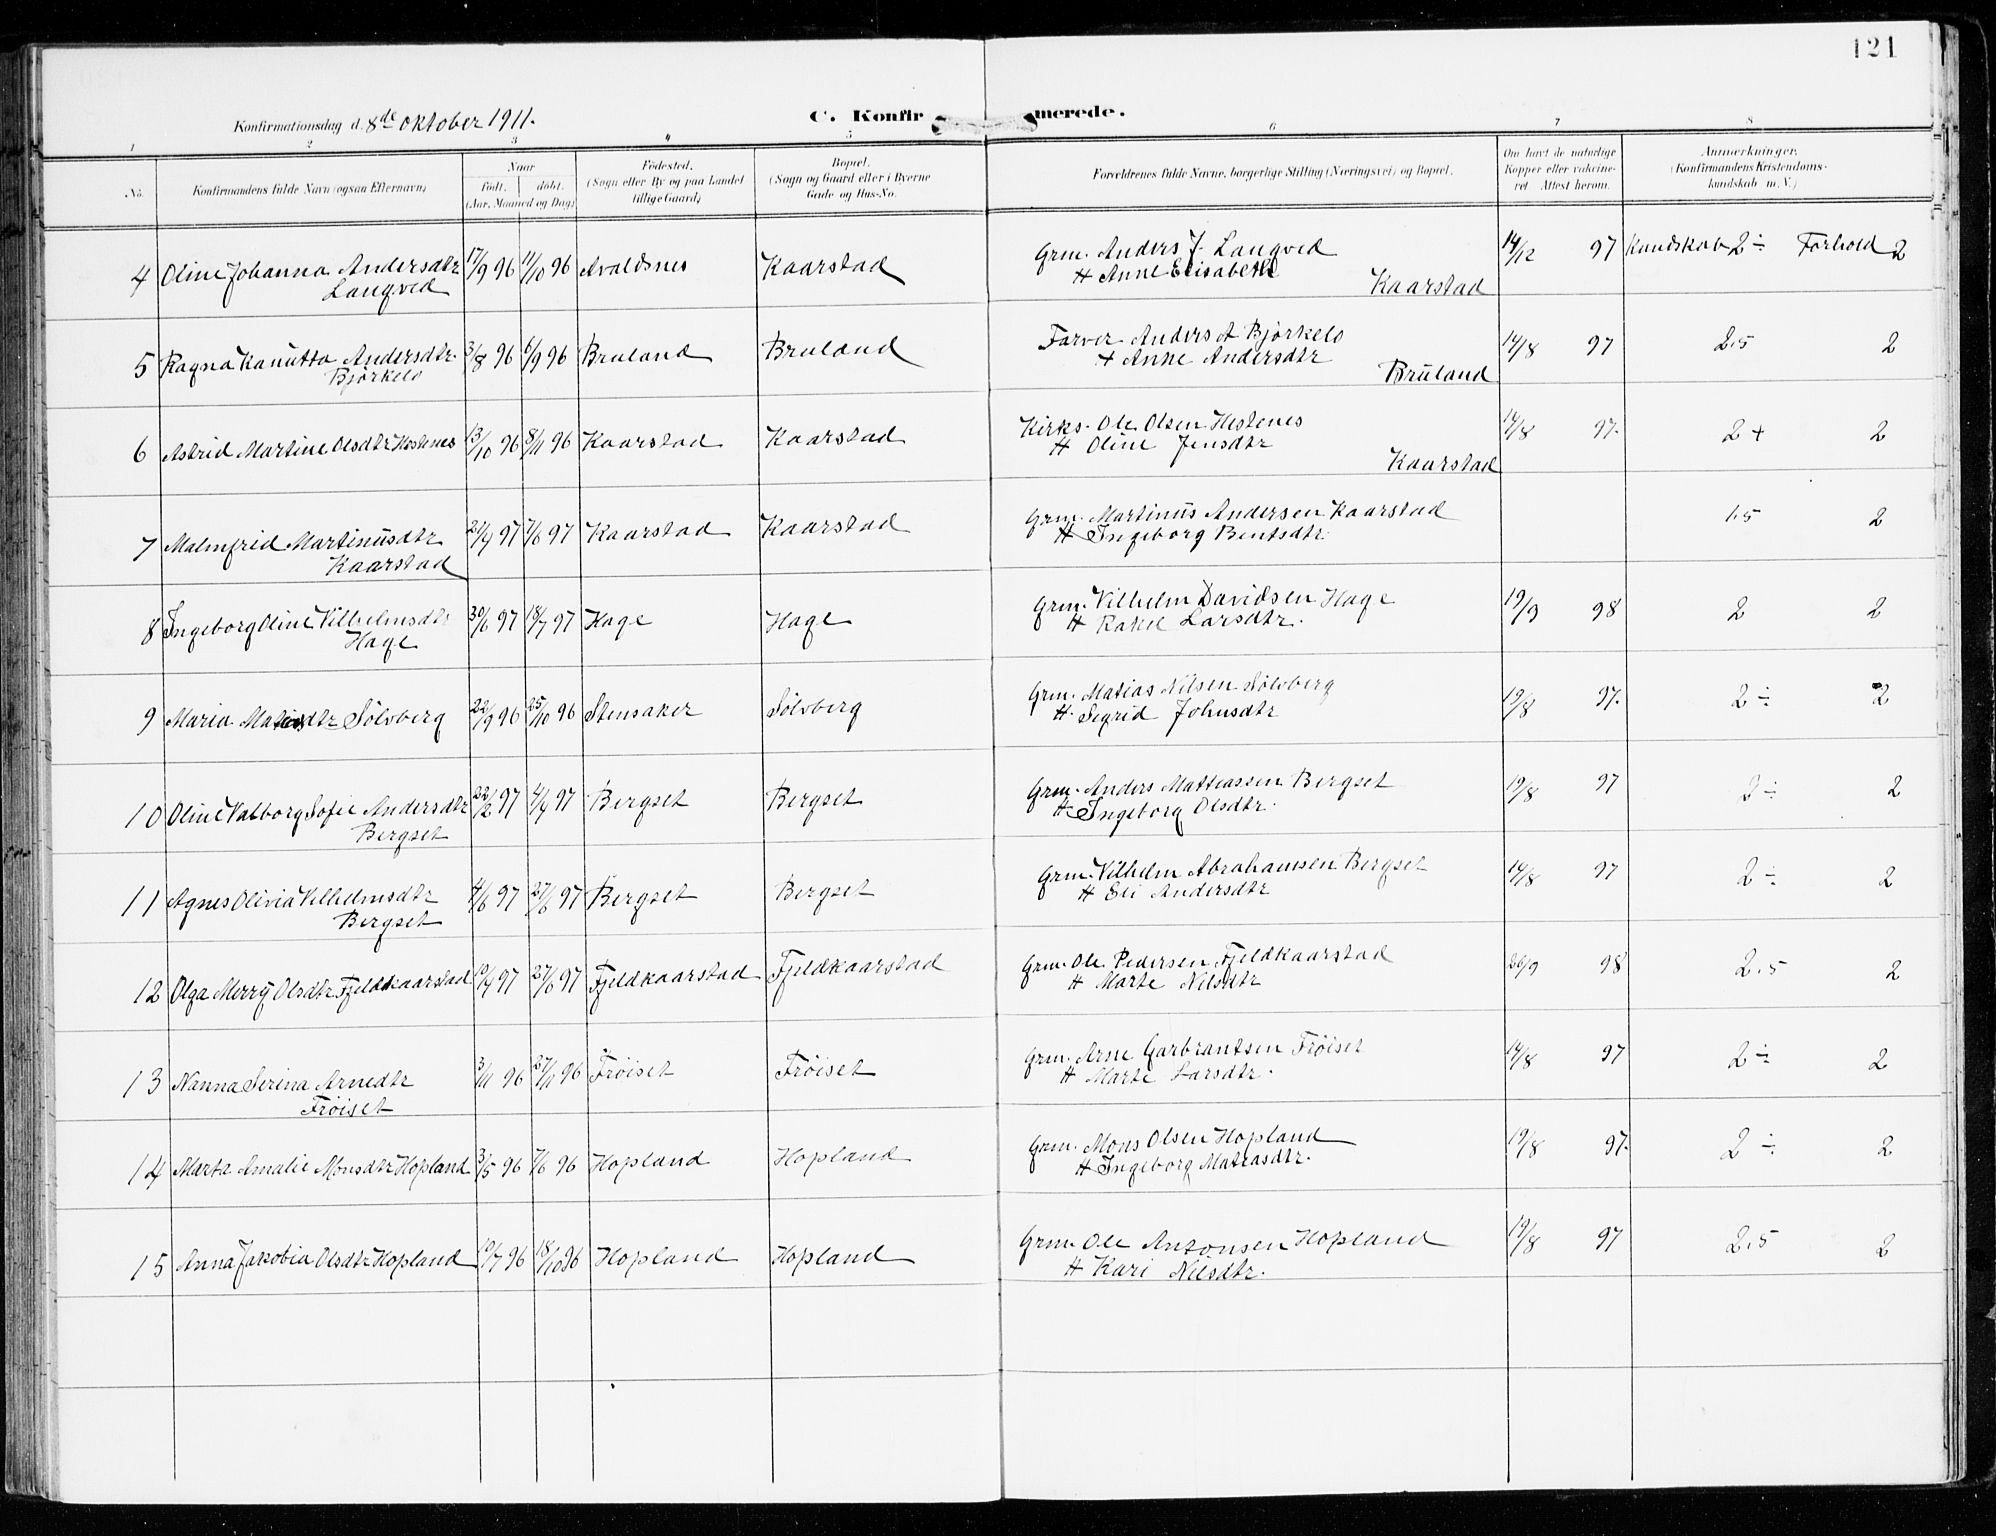 121
Konfirmationsdag d. 8de oktober 1911.
C. Konfirmerede.
1 2 3 4 5 6 7 8
No. Konfirmandens fulde Navn (ogsaa Efternavn) Naar födt. döbt. (Aar, Maaned og Dag) Födested. (Sogn eller By og paa Landet tillige Gaard) Bopæl. (Sogn og Gaard eller i Byerne Gade og Hus-No. Forældrenes fulde Navne, borgerlige Stilling (Næringsvei) og Bopæl. Om havt de naturlige Kopper eller vaccineret Attest herom. Anmærkninger. (Konfirmandens Kristendomskundskab m. V.)
4 Oline Johanna Andersdtr 17/9 96 11/10 96 Avaldsnes Kaarstad Grm. Anders J. Langved 14/12 97 Kundskab 2÷ Forhold 2
Langved H Anne Elisabeth
Kaarstad
5 Ragna Kanutta Andersdtr. 3/8 96 6/9 96 Bruland Bruland Farver Anders A Bjørkelo 14/8 97 2.5 2
Bjørkelo H Anne Andersdtr
Bruland
6 Astrid Martine Olsdtr Hestenes 13/10 96 8/11 96 Kaarstad Kaarstad Kirks. Ole Olsen Hestenes 14/8 97. 2+ 2
H Oline Jensdtr
Kaarstad
7 Malmfrid Martinusdtr 21/4 97 7/6 97 Kaarstad Kaarstad Grm. Martinus Andersen Kaarstad 1.5 2
Kaarstad H Ingeborg Bentsdtr.
8 Ingeborg Oline Vilhelmsdtr 30/6 97 18/7 97 Hage Hage Grm. Vilhelm Davidsen Hage 19/9 98 2 2
Hage H Rakel Larsdtr.
9 Maria Matiasdtr Sölvberg 22/9 96 25/10 96 Stensaker Sölvberg Grm. Matias Nilsen Sölvberg 19/8 97. 2÷ 2
H. Sigrid Johnsdtr
10 Oline Valborg Sofie Andersdtr 22/2 97 4/4 97 Bergset Bergset Grm. Anders Mattiassen Bergset 19/8 97 2÷ 2
Bergset H Ingeborg Olsdtr.
11 Agnes Olivia Vilhelmsdtr 4/6 97 27/6 97 Bergset Bergset Grm. Vilhelm Abrahamsen Bergset 14/8 97 2÷ 2
Bergset H Eli Andersdtr
12 Olga Merry Olsdtr Fjeldkaarstad 19/4 97 27/6 97 Fjeldkaarstad Fjeldkaarstad Grm. Ole Pedersen Fjeldkaarstad 26/9 98 2.5 2
H Marte Nilsdtr
13 Nanna Serina Arnedtr 3/11 96 27/11 96 Fröiset Fröiset Grm. Arne Garbrantsen Fröiset 14/8 97 2÷ 2
Fröiset H Marte Larsdtr.
14 Marta Amalie Monsdtr Hopland 3/5 96 7/6 96 Hopland Hopland Grm. Mons Olsen Hopland 19/8 97. 2÷ 2
H Ingeborg Matiasdtr.
15 Anna Jakobia Olsdtr Hopland 19/7 96 18/10 96 Hopland Hopland Grm. Ole Antonsen Hopland 19/8 97 2.5 2
H Kari Nilsdtr.